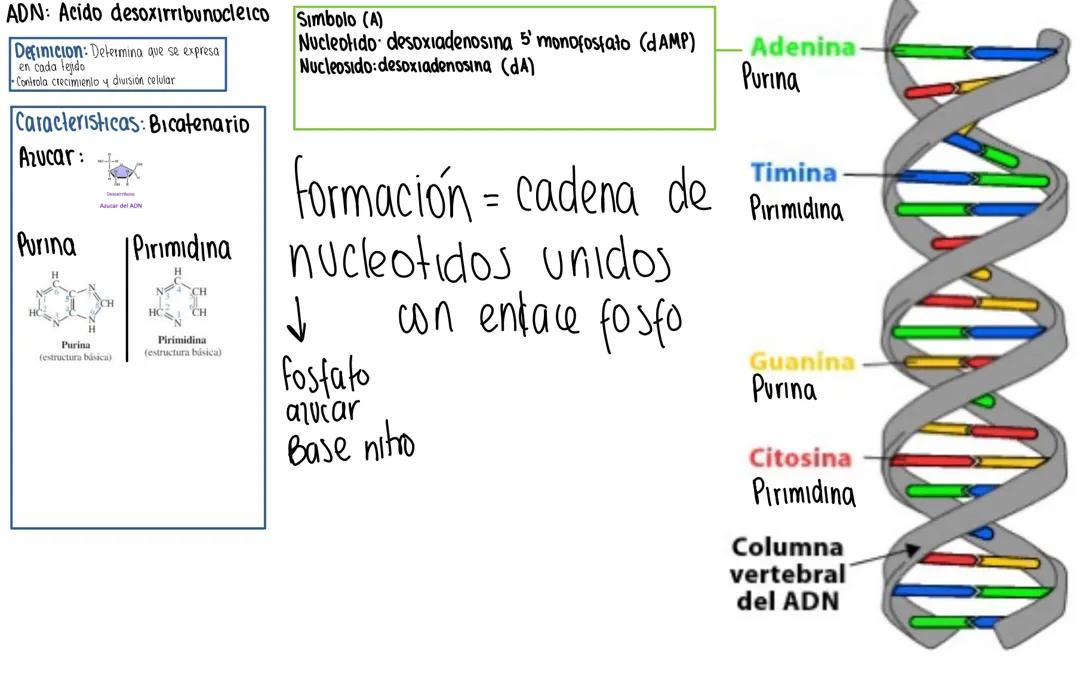 ADN: Acido desoxirribunocleico
Definicion: Determina que se expresa
en cada tejido
• Controla crecimiento y división celular
Caracteristicas: Bicatenario
Azucar:
Desoxirribosa
Azucar del ADN
Purina
Pirimidina
H
C
N
6
5
C
N
7
8
CH
9
HC
2
3
4
C
N
N
H
1
Purina
(estructura básica)
H
C
N
3
4
CH
5
HC
2
1
6
CH
N
Pirimidina
(estructura básica)
Simbolo (A)
Nucleotido: desoxiadenosina 5' monofosfato (dAMP)
Nucleosido: desoxiadenosina (dA)
formación = cadena de
nucleotidos unidos
↓ con enlace fosfo
fosfato
azucar
Base nitro
Adenina
Purina
Timina
Pirimidina
Guanina
Purina
Citosina
Pirimidina
Columna
vertebral
del ADN